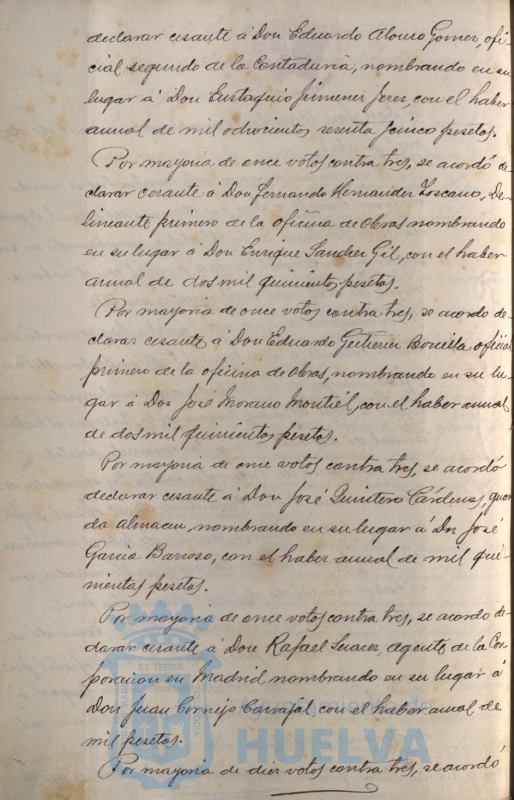 declarar cesante á Don Eduardo Alonso Gomez, ofi-
cial segundo de la Contaduria, nombrando en su
lugar á Don Eustaquio Jimenez Jerez, con el haber
annal de mil ochocientos sesenta y cinco pesetas.
Por mayoria de once votos contra tres, se acordó de-
clarar cesante á Don Fernando Hernandez Toscano, De-
lineante primero de la oficina de Obras nombrando
en su lugar á Don Enrique Sanchez Gil, con el haber
annal de dos mil quinientas pesetas.
Por mayoria de once votos contra tres, se acordo de-
clarar cesante á Don Eduardo Gutierrez oficial
primero de la oficina de Obras, nombrando en su lu-
gar á Don José Morano Montiel, con el haber annal
de dos mil quinientas pesetas.
Por mayoria de once votos contra tres, se acordó
declarar cesante á Don José Quintero Cárdenas, guar
da almacen, nombrando en su lugar á Dn José
Garcia Barroso, con el haber annal de mil qui-
nientas pesetas.
Por mayoria de once votos contra tres, se acordo de-
clarar cesante á Don Rafael Suarez, agente de la Cor
poracion en Madrid nombrando en su lugar á
Don Juan Cornejo Carvajal, con el haber annal de
mil pesetas.
Por mayoria de diez votos contra tres, se acordó
ET TERRA
HUELVA